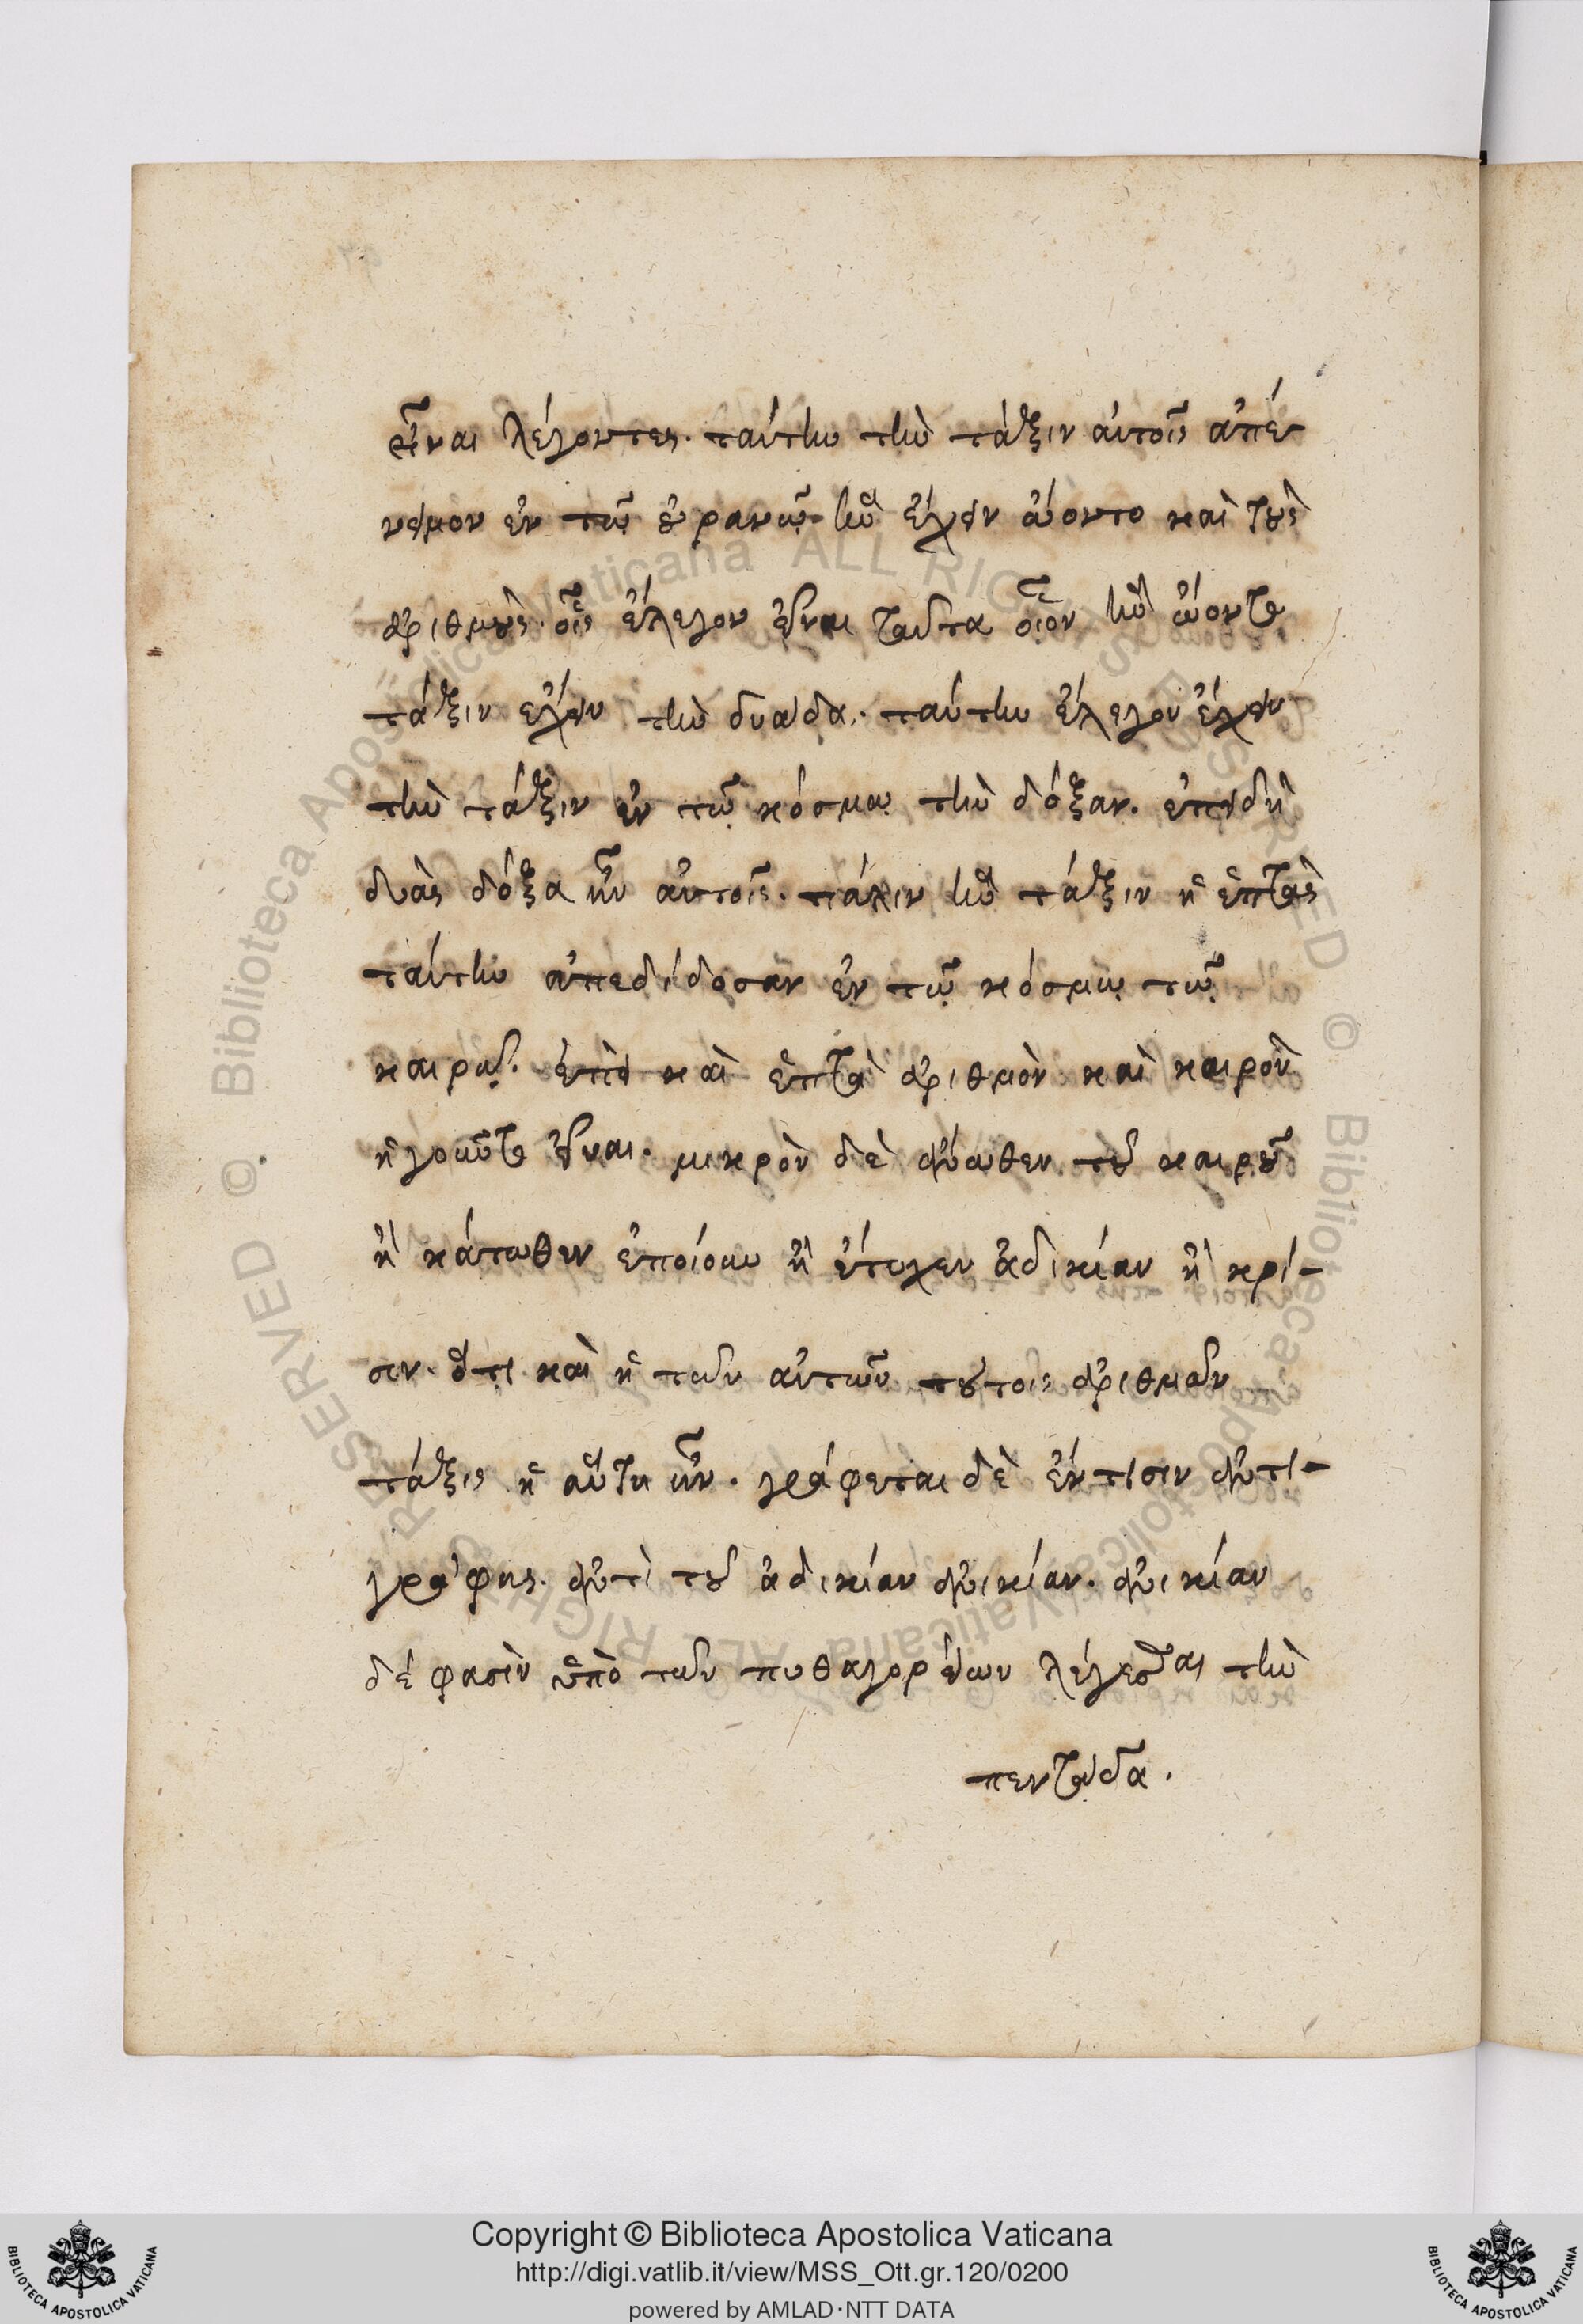 εἶναι λέγοντες. ταύτην τὴν τάξιν αὐτοῖς ἀπέ
νεμον ἐν τῷ οὐρανῷ ἣν ἔχειν ᾤοντο καὶ τοὺς
ἀριθμοὺς. οἷς ἔλεγον εἶναι ταῦτα οἷον ἣν ᾤοντο
τάξιν ἔχειν τὴν δυάδα. ταύτην ἔλεγον ἔχειν
τὴν τάξιν ἐν τῷ κόσμῳ τὴν δόξαν. ἐπειδὴ
δυὰς δόξα ἦν αὐτοῖς. πάλιν ἣν τάξιν ἡ ἑπτὰς
ταύτην ἀπεδίδοσαν ἐν τῷ κόσμῳ τῷ
καιρῷ. ἐπεὶ καὶ ἑπτὰ ἀριθμὸν καὶ καιρὸν
ἡγοῦντο εἶναι. μικρὸν δὲ ἄνωθεν τοῦ καιροῦ
ἢ κάτωθεν ἐποίουν ἢ ἔτυχεν ἀδικίαν ἢ κρί-
σιν. ὅτι καὶ ἡ τῶν αὐτῶν τούτοις ἀριθμῶν
τάξις ἡ αὕτη ἦν. γράφεται δὲ ἔν τισιν ἀντι-
γράφοις. ἀντὶ τοῦ ἀδικίαν ἀνικίαν. ἀνικίαν
δέ φασὶν ὑπὸ τῶν πυθαγορείων λέγεσθαι τὴν
πεντάδα.
Copyright © Biblioteca Apostolica Vaticana
http://digi.vatlib.it/view/MSS_Ott.gr.120/0200
powered by AMLAD·NTT DATA